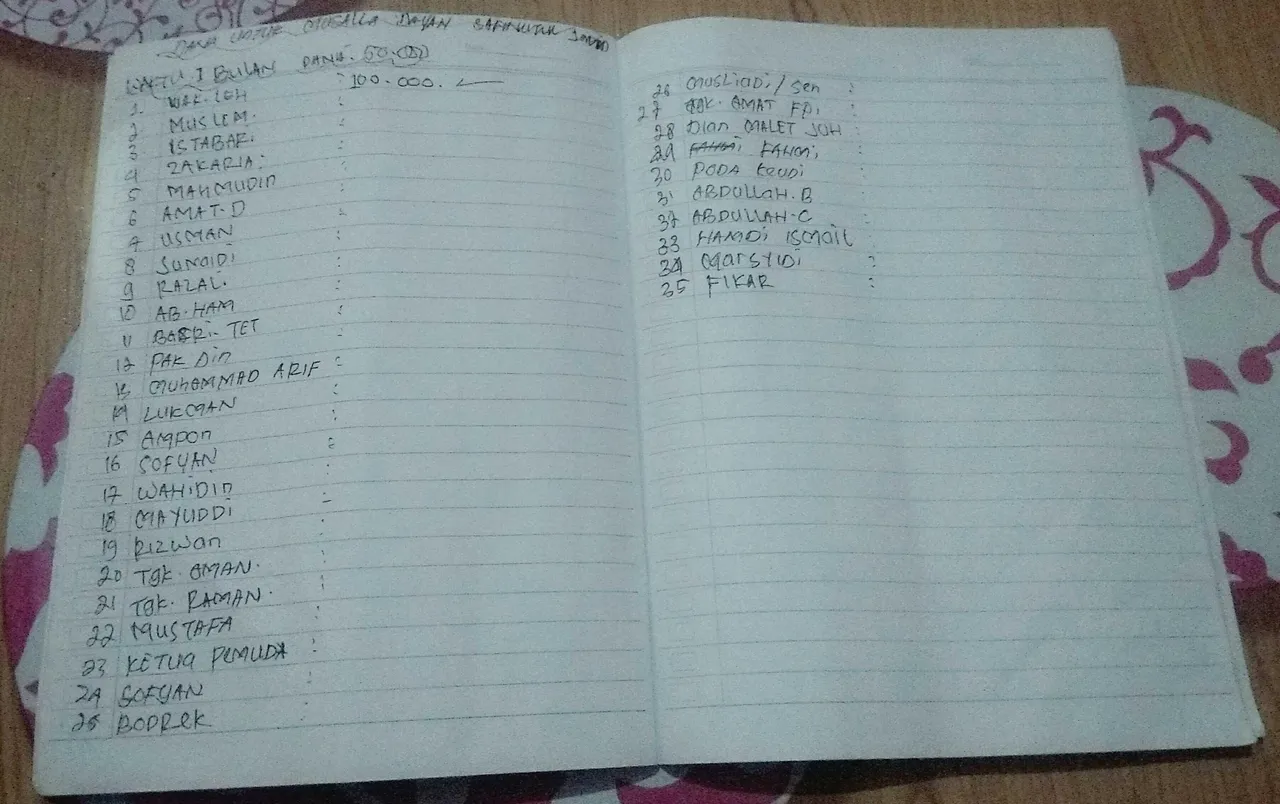 DANA UNTUK MUSALLA DAYAH SAFINATUN
WAKTU 1 BULAN DANA: 50.000
1. WAK. LEH : 100.000.
2 MUSLEM. :
3 ISTABARI. :
4 ZAKARIA. :
5 MAHMUDIN :
6 AMAT. D :
7 USMAN :
8 JUNAIDI :
9 RAZALI. :
10 AB. HAM :
11 BASRI. TET :
12 PAK DIN :
13 MUHAMMAD ARIF :
14 LUKMAN :
15 AMPON :
16 SOFYAN :
17 WAHIDIN :
18 MAYUDDI :
19 RIZWAN :
20 TGK. AMAN. :
21 TGK. RAMAN. :
22 MUSTAFA :
23 KETUA PEMUDA :
24 SOFYAN :
25 BODREK :
26 MUSLIADI / Sen :
27 TGK. AMAT FPI :
28 DIAN MALET JUH :
29 FAHMI, :
30 PODA :
31 ABDULLAH. B :
32 ABDULLAH. C :
33 HAMDI ISMAIL :
34 MARSYIDI :
35 FIKAR :